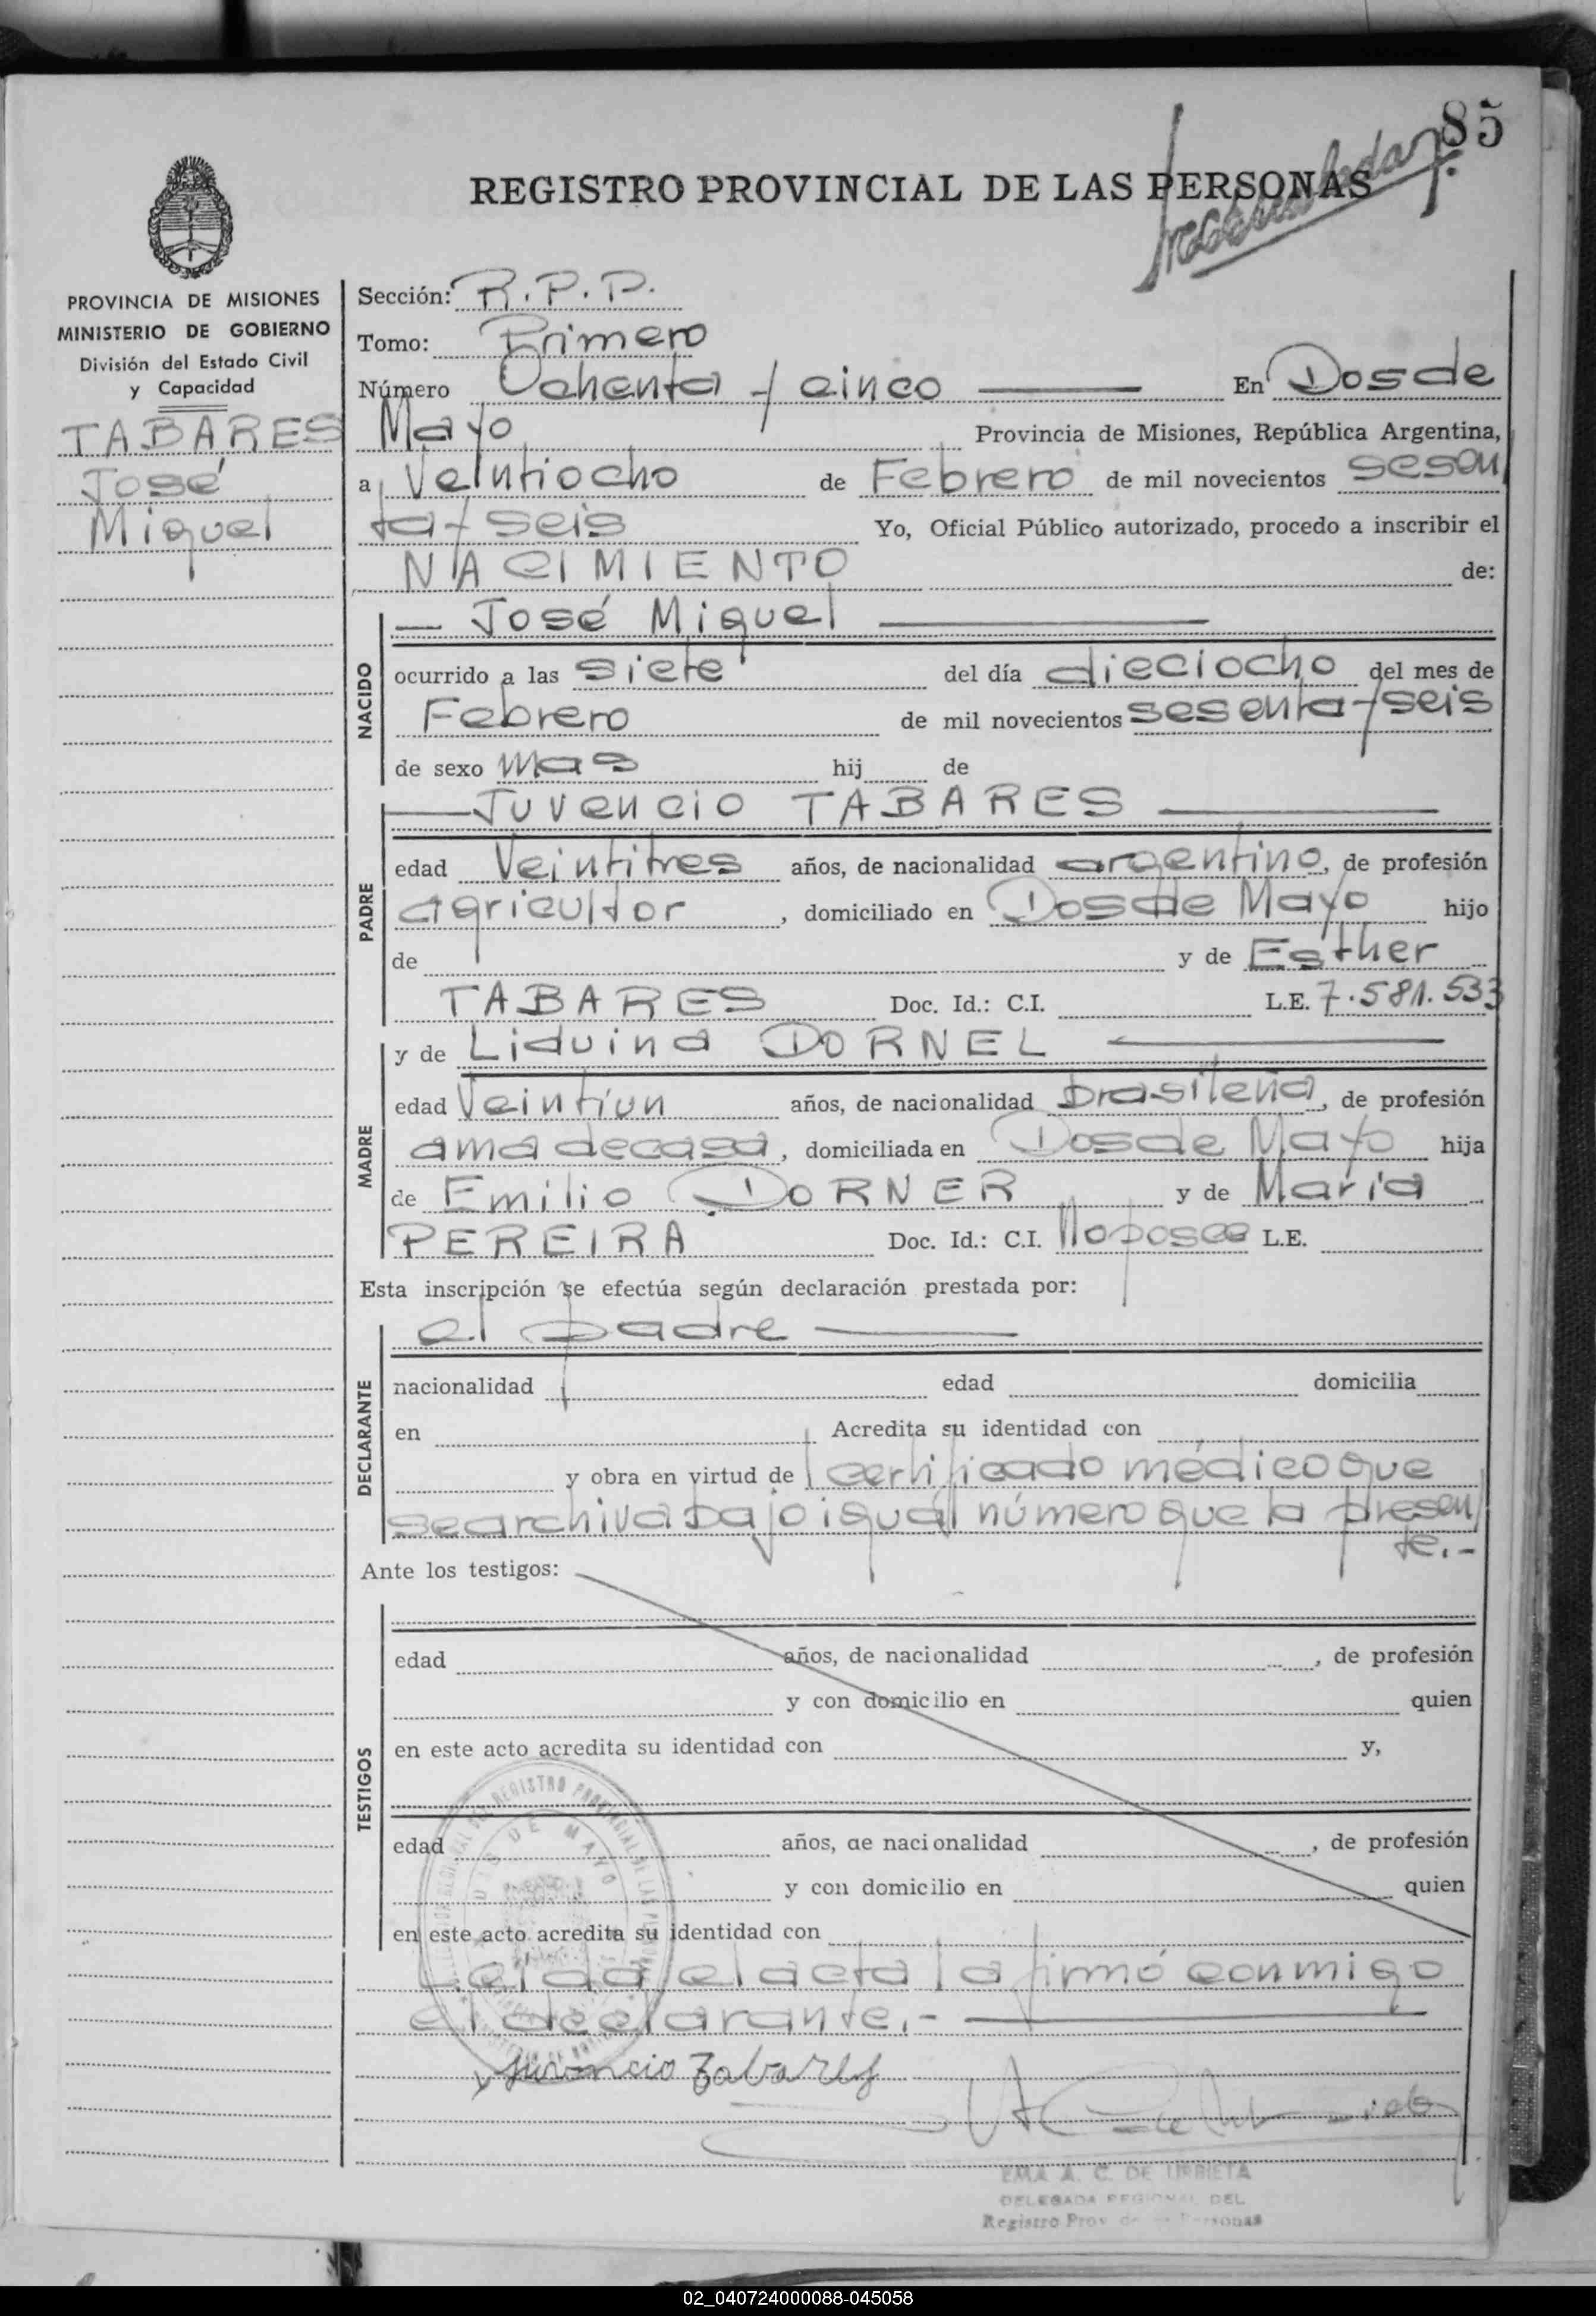 85
REGISTRO PROVINCIAL DE LAS PERSONAS
PROVINCIA DE MISIONES
MINISTERIO DE GOBIERNO
División del Estado Civil
y Capacidad
TABARES
José
Miguel
Sección: R.P.P.
Tomo: Primero
Número Ochenta y cinco En Dos de
Mayo Provincia de Misiones, República Argentina,
a Veintiocho de Febrero de mil novecientos sesen
ta y seis Yo, Oficial Público autorizado, procedo a inscribir el
NACIMIENTO de:
NACIDO
— José Miguel —
ocurrido a las siete del día dieciocho del mes de
Febrero de mil novecientos sesenta y seis
de sexo mas hij de
PADRE
— Juvencio TABARES —
edad Veintitres años, de nacionalidad argentino, de profesión
agricultor, domiciliado en Dos de Mayo hijo
de y de Esther
TABARES Doc. Id.: C.I. L.E. 7.581.533
MADRE
y de Liduina DORNEL —
edad Veintiun años, de nacionalidad brasileña, de profesión
ama de casa, domiciliada en Dos de Mayo hija
de Emilio DORNER y de María
PEREIRA Doc. Id.: C.I. No posee L.E.
Esta inscripción se efectúa según declaración prestada por:
DECLARANTE
el padre —
nacionalidad edad domicilia
en Acredita su identidad con
y obra en virtud de certificado médico que
se archiva bajo igual número que la presen
te.-
Ante los testigos:
TESTIGOS
edad años, de nacionalidad , de profesión
y con domicilio en quien
en este acto acredita su identidad con y,
edad años, de nacionalidad , de profesión
y con domicilio en quien
en este acto acredita su identidad con
REGISTRO PROVINCIAL DE LAS
DOS DE MAYO
Leída el acta la firmó conmigo
el declarante.- —
Juvencio Tabares
EMA A. C. DE URRIETA
DELEGADA REGIONAL DEL
Registro Prov. de las Personas
02_040724000088-045058